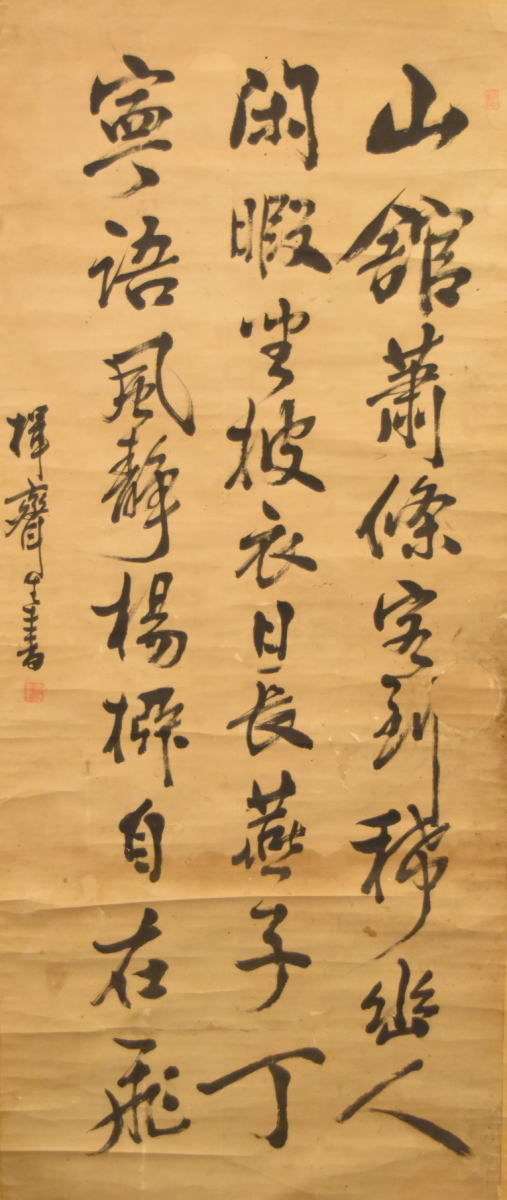 山館蕭條客到稀幽人
閑暇坐披衣日長燕子丁
寧語風靜楊花自在飛
齋主書